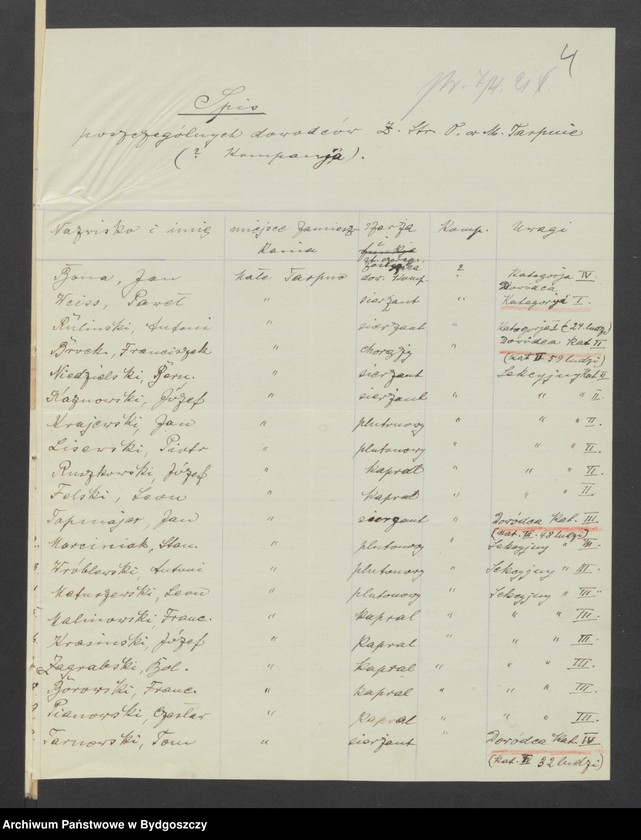 4
Spis
poszczególnych dowodców Z. Str. P. w M. Tarpnie
(2 Kompanja).
Nazwisko i imię miejsce Zamiesz- szarża Komp. Uwagi
kania funkcja
Bona, Jan Małe Tarpno dow. Komp. 2 Kategorja IV.
Weiss, Paweł " sierżant " Dowódca Kategorji I.
Ruliński, Antoni " sierżant " Kategorja I (24 ludzi)
Brock, Franciszek " chorąży " Dowódca Kat II
(Kat II 59 ludzi)
Niedzielski, Bern. " sierżant " Sekcyjny Kat II
Kaznowski, Józef " sierżant " " " II.
Krajewski, Jan " plutonowy " " " II.
Lisewski, Piotr " plutonowy " " " II.
Ruszkowski, Józef " kapral " " " II.
Felski, Leon " kapral " " " II
Topmajer, Jan " sierżant " Dowódca Kat. III
(Kat. III. 48 ludzi)
Marciniak, Stan. " plutonowy " Sekcyjny " III.
Wróblewski, Antoni " plutonowy " Sekcyjny " III.
Matuszewski, Leon " plutonowy " Sekcyjny " III.
Malinowski Franc. " kapral " " " III.
Krasiński, Józef " kapral " " " III.
Zagrabski, Bol. " kapral " " " III.
Borowski, Franc. " kapral " " " III.
Pianowski, Czesław " kapral " " III.
Tarnowski, Tom " sierżant " Dowódca Kat. IV
32 ludzi)
Archiwum Państwowe w Bydgoszczy